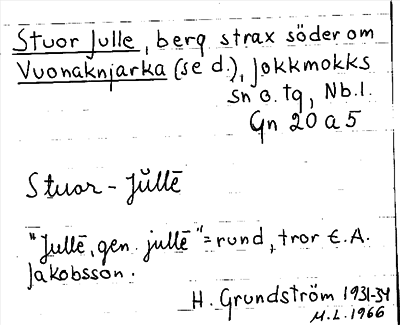 Stuor Julle, berg strax söder om
Vuonaknjarka (se d.), Jokkmokks
sn o. tg, Nb.l.
Gn 20 a 5
Stuor - Jŭllē
"Jullē, gen. jullē" = rund, tror E.A.
Jakobsson.
H. Grundström 1931-34
M.L. 1966